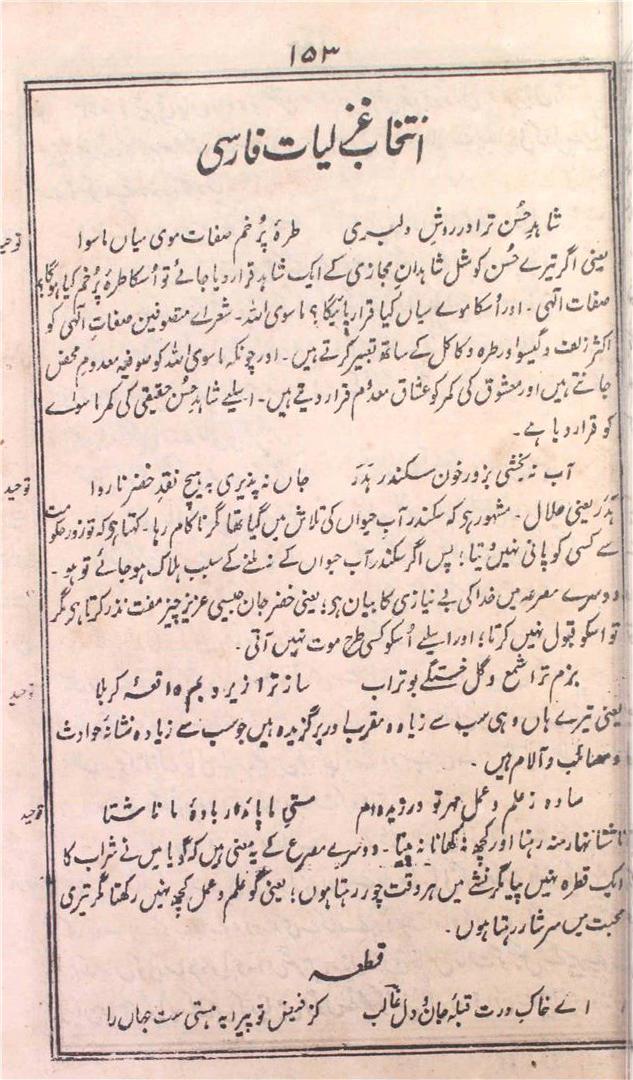 ۱۵۳
انتخاب غزلیات فارسی
شاہدِ حُسن ترا در روشِ دلبری طرۂ پُرخم صفات موی میاں ماسوا
توحید
یعنی اگر تیرے حُسن کو مثل شاہدانِ مجازی کے ایک شاہد قرار دیا جائے تو اُسکا طرۂ پُرخم کیا ہوگا؟
صفات الٰہی۔ اور اُسکا موے میاں کیا قرار پائیگا؟ ماسوی اللہ۔ شعراے متصوفین صفاتِ الٰہی کو
اکثر زلف و گیسو اور طرہ و کاکل کے ساتھ تعبیر کرتے ہیں۔ اور چونکہ ماسوی اللہ کو صوفیہ معدومِ محض
جانتے ہیں اور معشوق کی کمر کو عشاق معدوم قرار دیتے ہیں۔ اسلیے شاہدِ حُسن حقیقی کی کمر ماسواے
کو قرار دیا ہے۔
آب نہ بخشی بزور خون سکندر ہدَر جاں نہ پذیری بہ ہیچ نقدِ خضر ناروا
توحید
ہدَر یعنی حلال۔ مشہور ہی کہ سکندر آبِ حیواں کی تلاش میں گیا تھا مگر ناکام رہا۔ کہتا ہو کہ تو زور حکومت
سے کسی کو پانی نہیں دیتا؛ پس اگر سکندر آب حیواں کے نہ ملنے کے سبب ہلاک ہو جائے تو ہو۔
دوسرے مصرعہ میں خدا کی بے نیازی کا بیان ہی؛ یعنی خضر جان جیسی عزیز چیز مفت نذر کرتا ہی مگر
تو اسکو قبول نہیں کرتا؛ اور اسلیے اُسکو کسی طرح موت نہیں آتی۔
بزم ترا شمع و گل خستگیِ بوتراب ساز ترا زیر و بم واقعۂ کربلا
توحید
یعنی تیرے ہاں وہی سب سے زیادہ مقرب اور برگزیدہ ہیں جو سب سے زیادہ نشانۂ حوادث
و مصائب و آلام ہیں۔
سادہ ز علم و عمل مہر تو ورزیدہ ام مستیِ ما پائدار بادۂ ما ناشتا
توحید
ناشتا نہار منہ رہنا اور کچھ نہ کھانا نہ پینا۔ دوسرے مصرع کے یہ معنی ہیں کہ گویا میں نے شراب کا
ایک قطرہ نہیں پیا مگر نشے میں ہر وقت چور رہتا ہوں؛ یعنی گو علم و عمل کچھ نہیں رکھتا مگر تیری
محبت میں سرشار رہتا ہوں۔
قطعہ
اے خاکِ درت قبلۂ جان و دل غالب کز فیض تو پیرایہ ہستی ست جہاں را